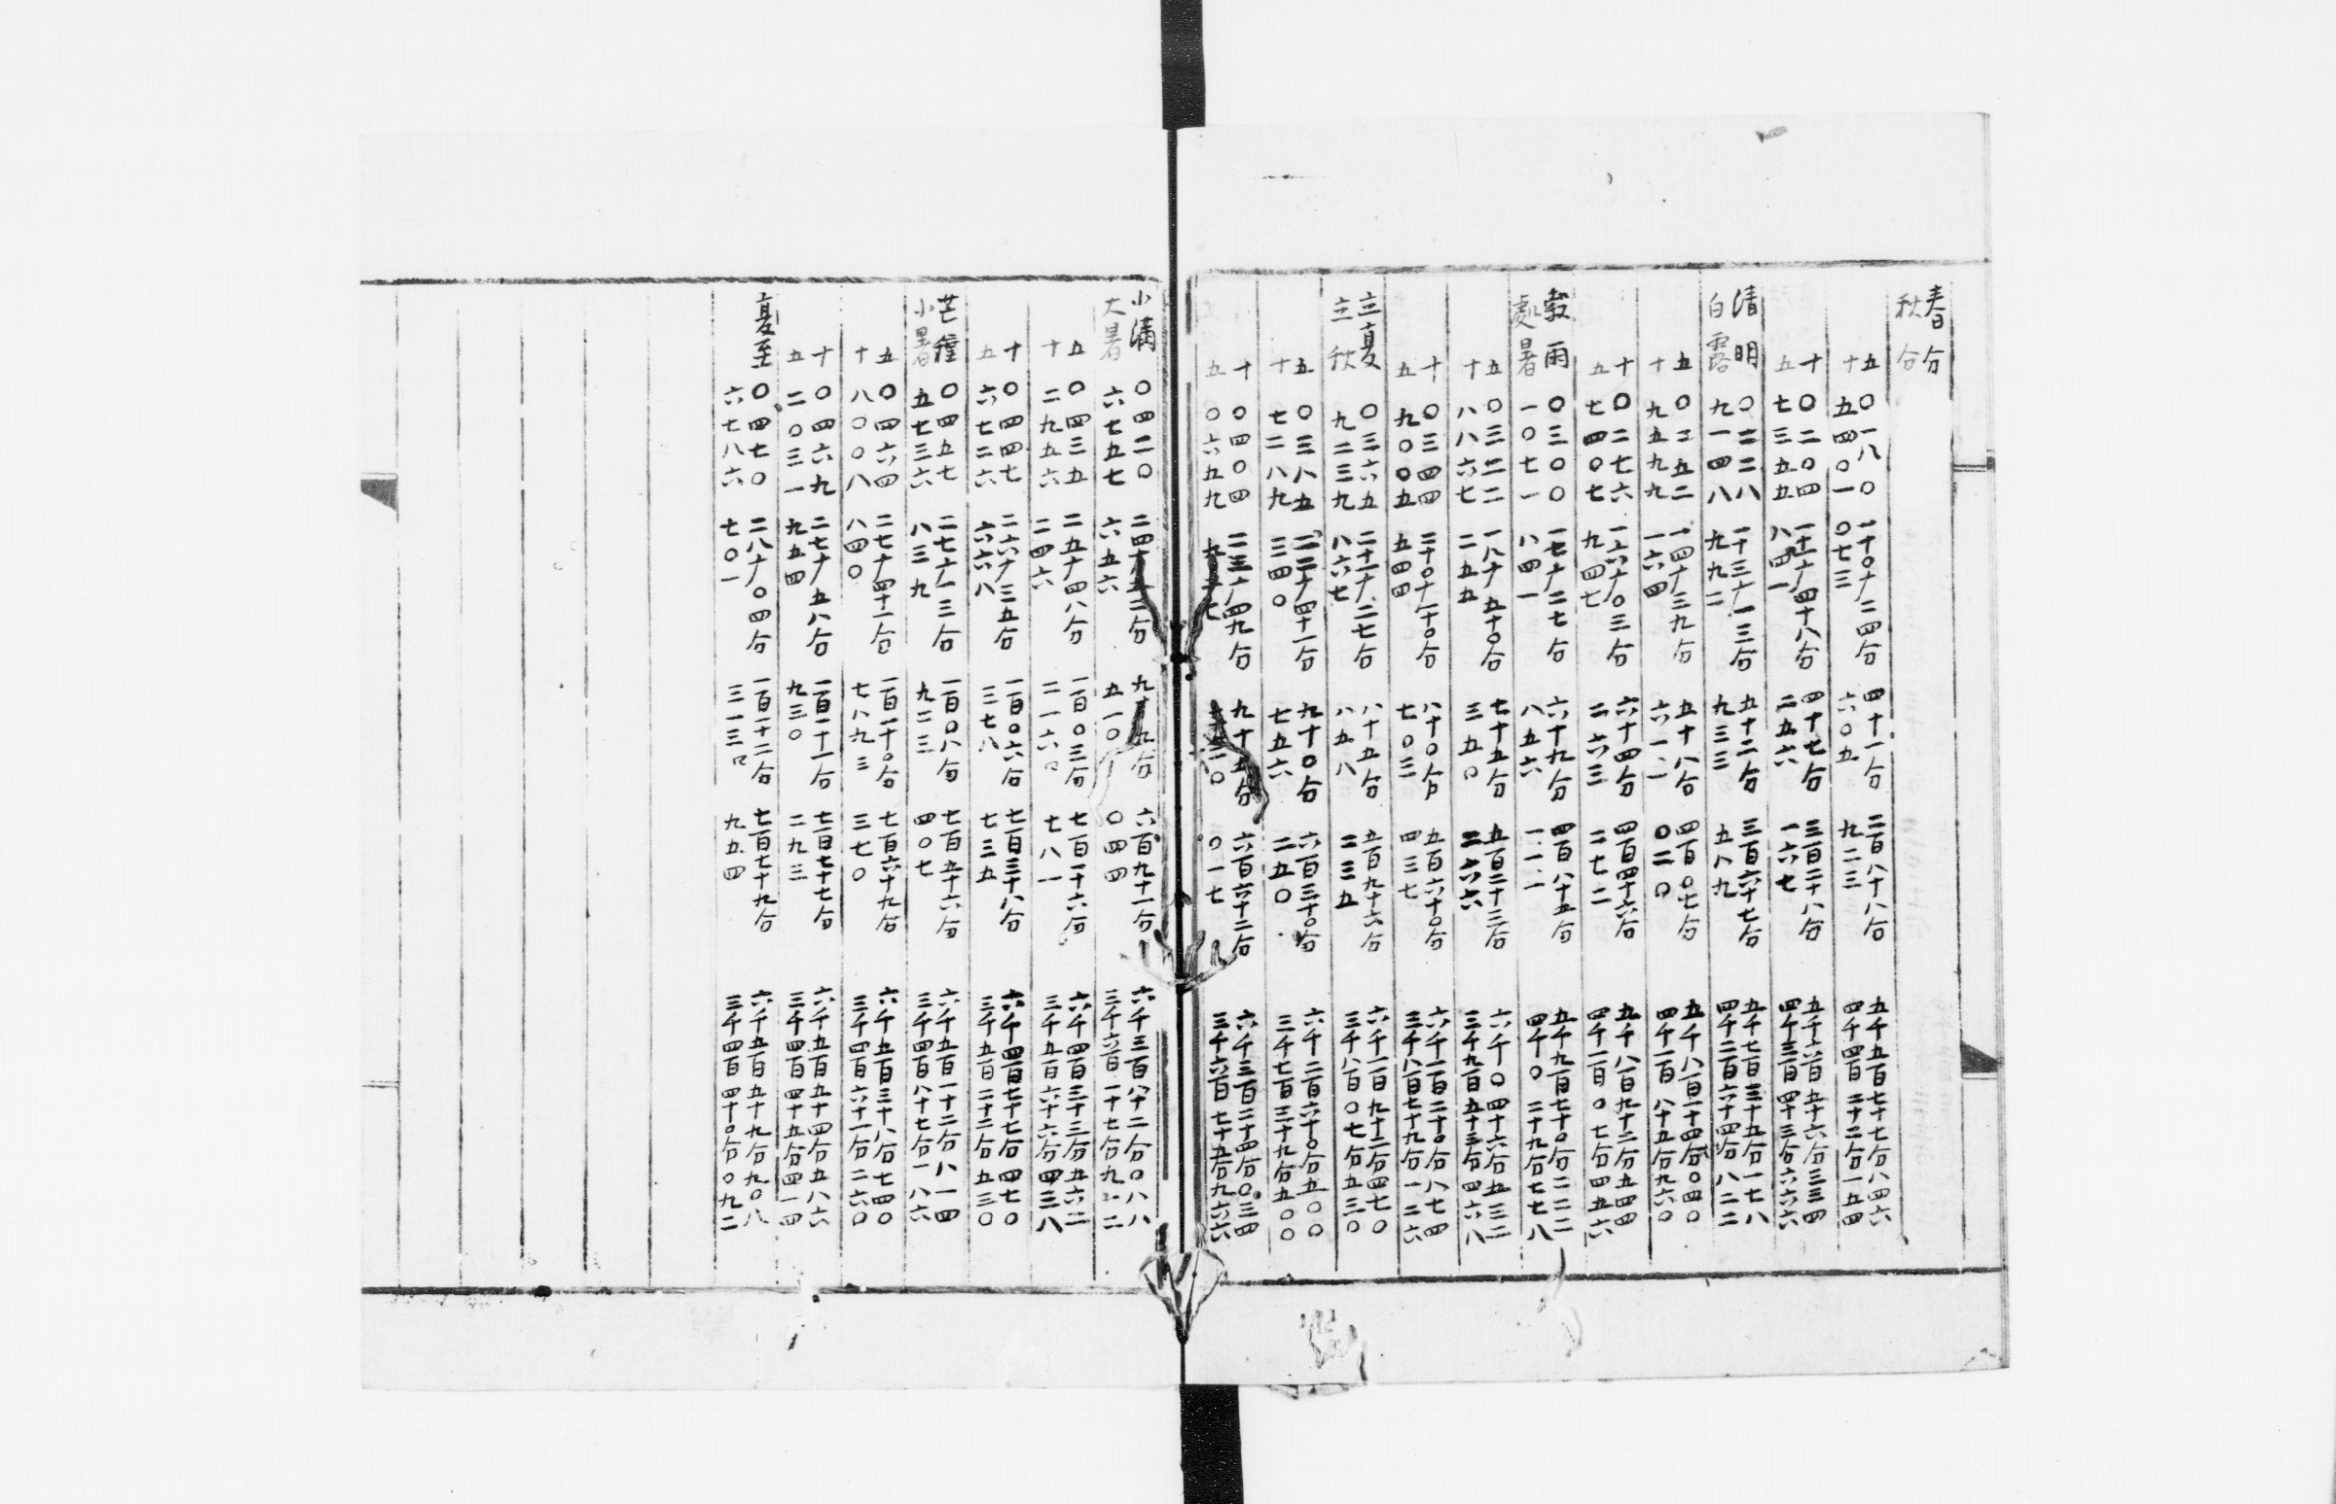 春分
秋分
五〇一八〇 一十〇十二四分 四十一分 二百八十八分 五千五百七十七分八四六
十五四〇一 〇七三 六〇五 九二三 四千四百二十二分一五四
十〇二〇四 一十一十四十八分 四十七分 三百二十八分 五千六百五十六分三三四
五七三五五 八四一 二五六 一六七 四千三百四十三分六六六
清明〇二二八 一十三十一三分 五十二分 三百六十七分 五千七百三十五分一七八
白露九一四八 九九二 九三三 五八九 四千二百六十四分八二二
五〇二五二 一四十三九分 五十八分 四百〇七分 五千八百一十四分〇四〇
十九五九九 一六四 六一一 〇二〇 四千一百八十五分九六〇
十〇二七六 一六十〇三分 六十四分 四百四十六分 五千八百九十二分五四四
五七四〇七 九四七 二六三 二七二 四千一百〇七分四五六
穀雨〇三〇〇 一七十二七分 六十九分 四百八十五分 五千九百七十〇分二二二
處暑一〇七一 八四一 八五六 一一一 四千〇二十九分七七八
五〇三二二 一八十五十〇分 七十五分 五百二十三分 六千〇四十六分五三二
十八八六七 二五五 三五〇 二六六 三千九百五十三分四六八
十〇三四四 二十〇十一十〇分 八十〇分 五百六十〇分 六千一百二十〇分八七四
五九〇〇五 五四四 七〇三 四三七 三千八百七十九分一二六
立夏〇三六五 二十一十二七分 八十五分 五百九十六分 六千一百九十二分四七〇
立秋九二三九 八六七 八五八 二三五 三千八百〇七分五三〇
五〇三八五 二二十四十一分 九十〇分 六百三十〇分 六千二百六十〇分五〇〇
十七二八九 三四〇 七五六 二五〇 三千七百三十九分五〇〇
十〇四〇四 二三十四九分 九十五分 六百六十二分 六千三百二十四分〇三四
五〇六五九 〇一七 三千六百七十五分九六六
小滿〇四二〇 二四十五二分 九十九分 六百九十一分 六千三百八十二分〇八八
大暑六七五七 六五六 五一〇 〇四四 三千六百一十七分九一二
五〇四三五 二五十四八分 一百〇三分 七百一十六分 六千四百三十三分五六二
十二九五六 二四六 二一六 七八一 三千五百六十六分四三八
十〇四四七 二六十三五分 一百〇六分 七百三十八分 六千四百七十七分四七〇
五六七二六 六六八 三七八 七三五 三千五百二十二分五三〇
芒種〇四五七 二七十一三分 一百〇八分 七百五十六分 六千五百一十二分八一四
小暑五七三六 八三九 九二三 四〇七 三千四百八十七分一八六
五〇四六四 二七十四十一分 一百一十〇分 七百六十九分 六千五百三十八分七四〇
十八〇〇八 八四〇 七八九三 三七〇 三千四百六十一分二六〇
十〇四六九 二七十五八分 一百一十一分 七百七十七分 六千五百五十四分五八六
五二〇三一 九五四 九三〇 二九三 三千四百四十五分四一四
夏至〇四七〇 二八十〇四分 一百一十二分 七百七十九分 六千五百五十九分九〇八
六七八六 七〇一 三一三 九五四 三千四百四十〇分〇九二